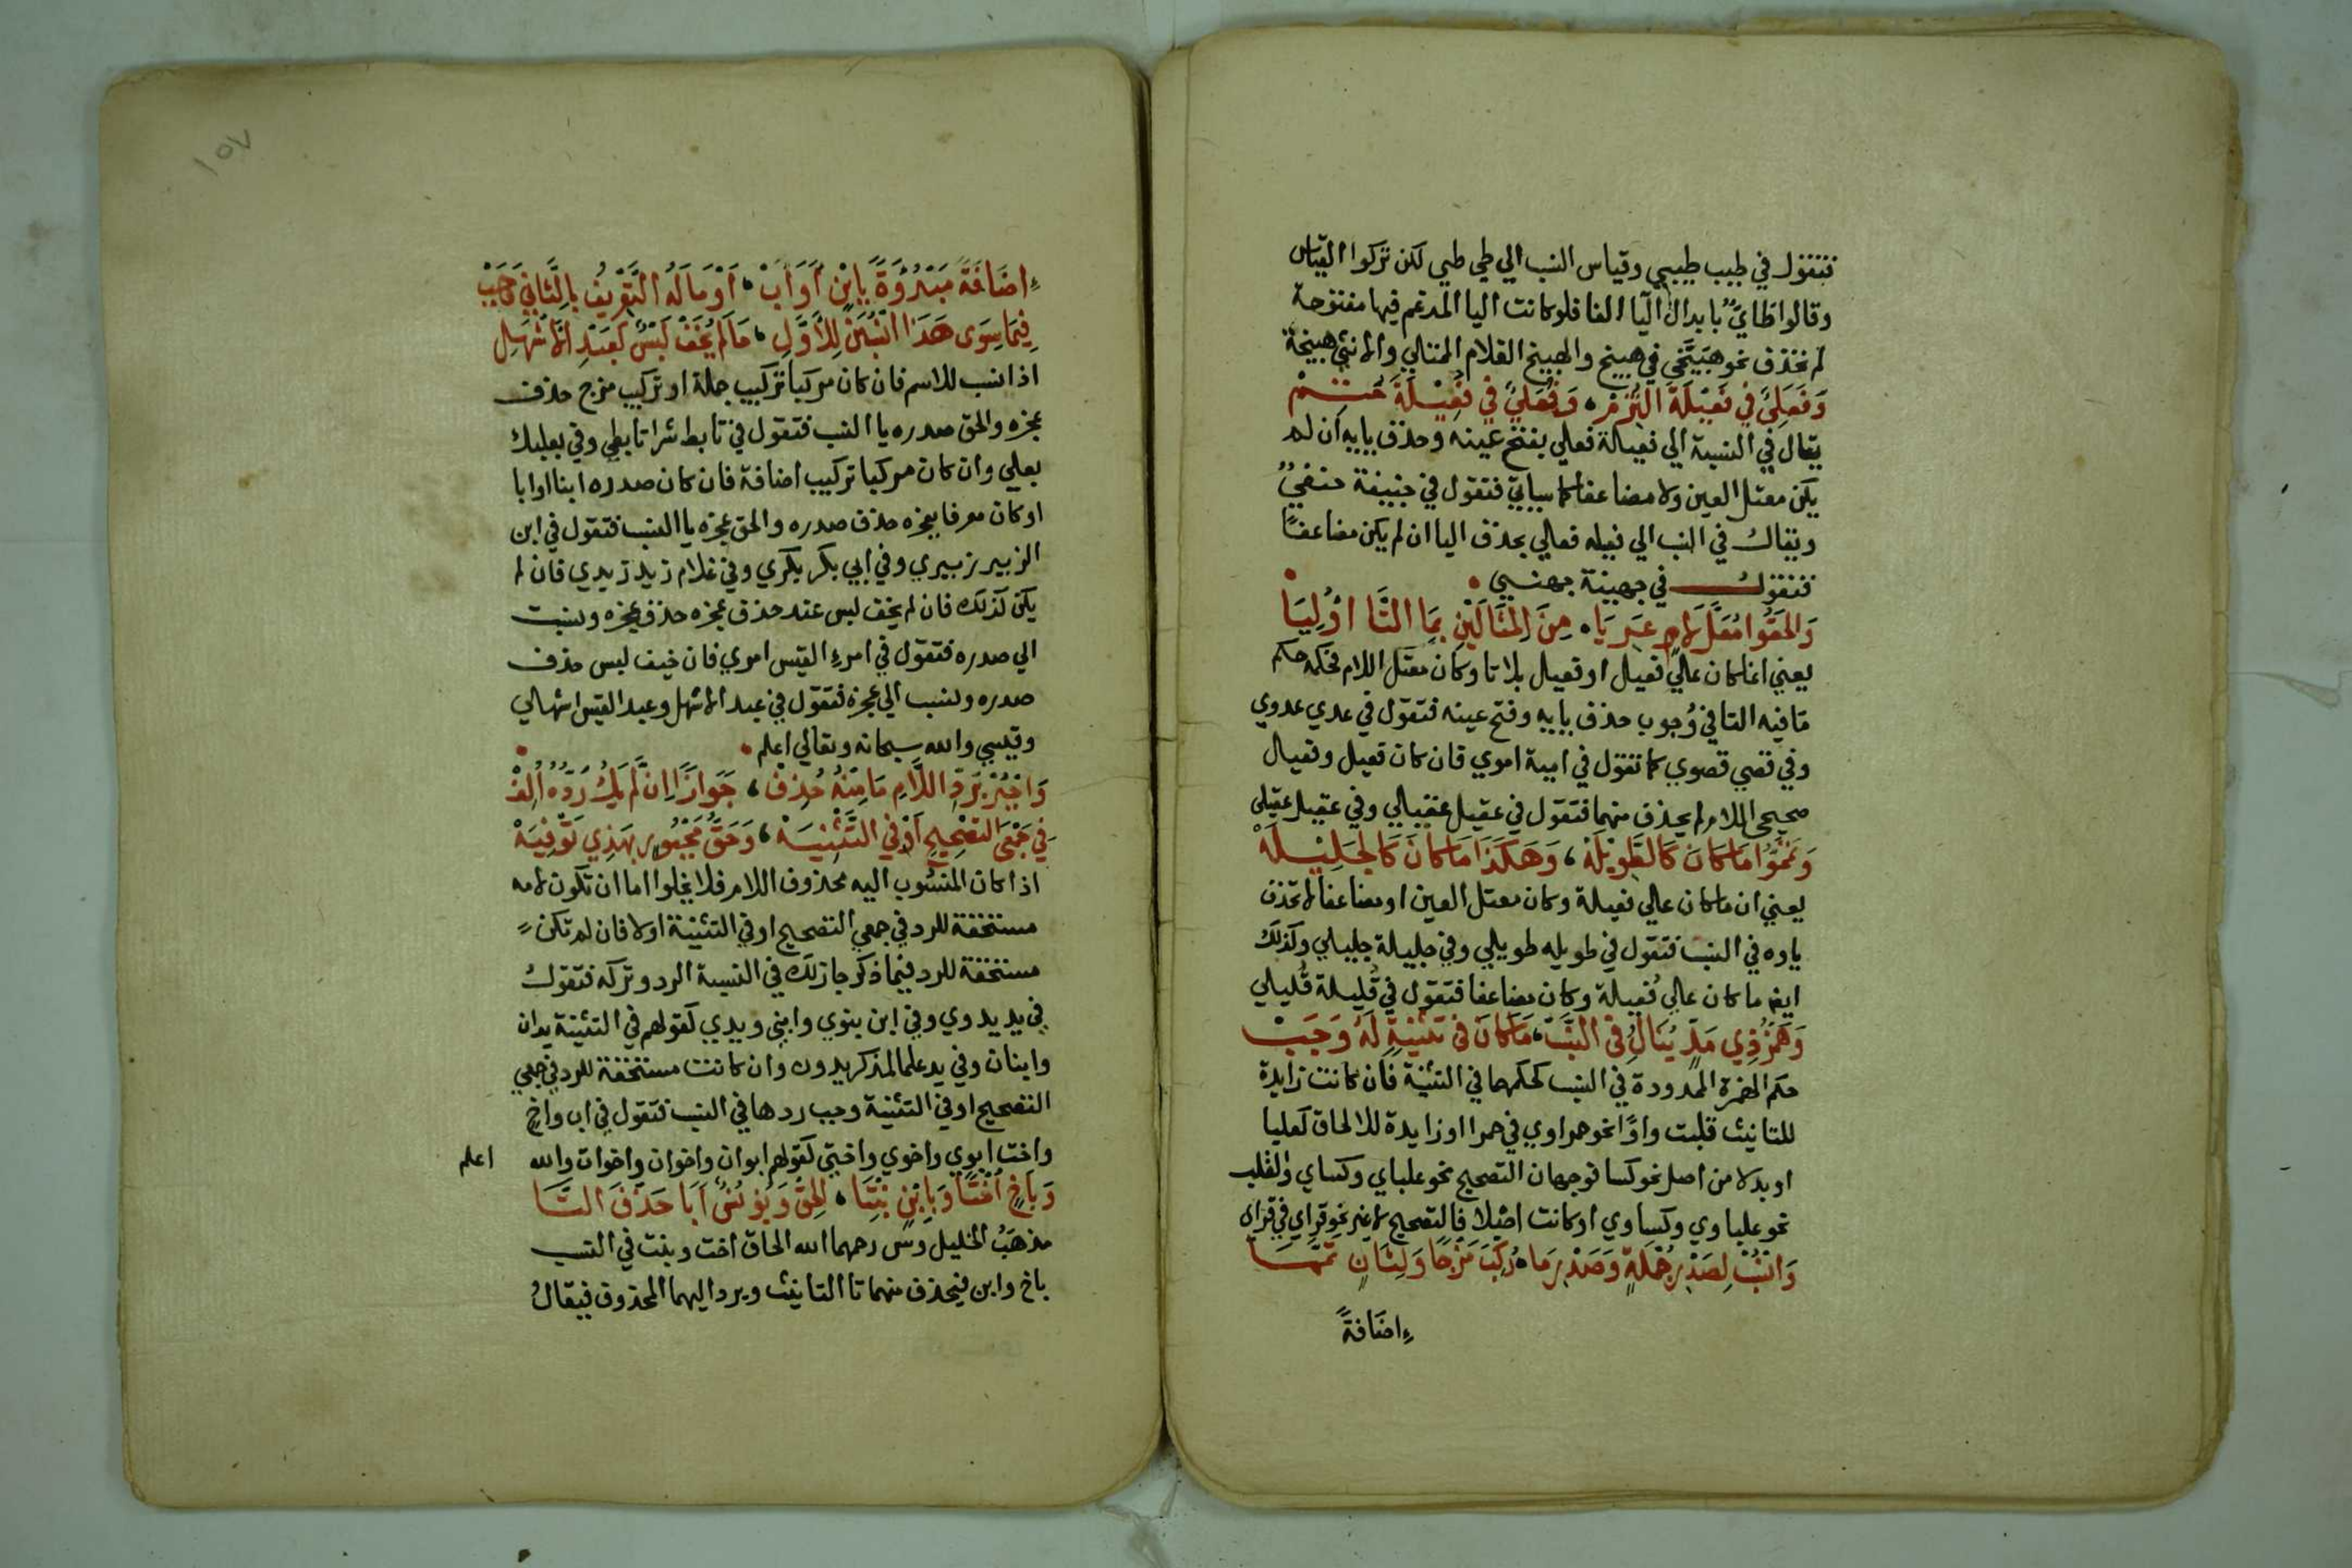 فتقول في طيب طيبي وقياس النسب الي طي طيي لكن تركوا القياس
وقالوا طَايٌ بابدال اليا الفا فلوكانت اليا المدغم فيها مفتوحة
لم تحذف نحو هَبَيَّخي في هبيخ والهبيخ الغلام الممتلي والانثي هبيخة
وَفَعَلِيٌ في فَعِيْلَةَ الْتُزِمْ • وَفُعَلِيٌ في فُعَيْلَةَ حُتِمْ
يقال في النسبة الي فعيلة فعلي بفتح عينه وحذف يايه ان لم
يكن معتل العين ولا مضاعفا كما سياتي فتقول في حنيفة حنفيٌ
ويقال في النسب الي فعيله فعلي بحذف اليا ان لم يكن مضاعفًا
فتقول في جهينة جهنيي •
وَالحَقُوا مُعَلَّ لَامٍ عَرِيَا • مِنَ المِثَالَيْنِ بِمَا التَّا اوْلِيَا
يعني اذا كان علي فعيل او فعيل بلا تا وكان معتل اللام فحكمه حكم
مَا فيه التا في وُجوب حذف يايه وفتح عينه فتقول في عدي عدوي
وفي قصي قصوي كما تقول في امية اموي فان كان فعيل وفعيل
صحيحي اللام لم يحذف منهما فتقول في عقيل عقيلي وفي عقيل عقيلي
وَتَمَّمُوا مَا كَانَ كَالطَّوِيْلَهْ ، وَهَكَذَا مَا كَانَ كَالجَلِيْلَهْ
يعني ان ما كان علي فعيلة وكان معتل العين او مضاعفا لا تحذف
ياوه في النسب فتقول في طويله طويلي وفي جليلة جليلي وكذلك
ايضا ما كان علي فُعيلة وكان مضاعفا فتقول في قُليلة قُليلي
وَهَمْزُ ذِي مَدٍّ يُنَالُ في النَّسَبْ ، مَا كَانَ في تَثْنِيَةٍ لَهُ وَجَبْ
حكم الهمزة الممدودة في النسب كحكمها في التثنية فان كانت زايدة
للتانيث قلبت واوًا نحو حمراوي في حمرا او زايدة للالحاق كعلبا
او بدلا من اصل نحو كسا فوجهان التصحيح نحو علباي وكساي والقلب
نحو علباوي وكساوي او كانت اصْلا فالتصحيح لا غير نحو قراي في قراء
وَانْسُبْ لِصَدْرِ جُمْلَةٍ وَصَدْرِ مَا • رُكِّبَ مَزْجًا وَلِثَانٍ تَمَّمَا
اِضَافَةً
١٥٧
اِضَافَةً مَبْدُوْةً بِابْنٍ أَوَ ابْ ، اَوْ مَا لَهُ التَّعْرِيْفُ بِالثَّانِي وَجَبْ
فِيْمَا سِوَى هَذَا انْسُبَنْ لِلأَوَّلِ ، مَا لَمْ يُخَفْ لَبْسٌ كَعَبْدِ الاَشْهَلِ
اذا نسب للاسم فان كان مركبا تركيب جملة او تركيب مزج حذف
عجزه والحق صدره يا النسب فتقول في تابط شرا تابطي وفي بعلبك
بعلي وان كان مركبا تركيب اضافة فان كان صدره ابنا او ابا
او كان معرفا بعجزه حذف صدره والحق عجزه يا النسب فتقول في ابن
الزبير زبيري وفي ابي بكر بكري وفي غلام زيد زيدي فان لم
يكن كذلك فان لم يخف لبس عند حذف عجزه حذف عجزه ونسبت
الي صدره فتقول في امرء القيس امري فان خيف لبس حذف
صدره ونسب الي عجزه فتقول في عبد الاشهل وعبد القيس اشهلي
وقيسي والله سبحانه وتعالي اعلم •
وَاجْبُرْ بِرَدِّ اللَّامِ مَا مِنْهُ حُذِفْ ، جَوَازًا اِنْ لَّمْ يَكُ رَدُّهُ اُلِفْ
فِي جَمْعَي التَصْحِيْحِ اَوْ في التَّثْنِيَهْ ، وَحَقُّ مَجْبُورٍ بِهَذِي تَوْفِيَهْ
اذا كان المنسُوب اليه محذوف اللام فلا يخلوا اما ان تكون لامه
مستحقة للرد في جمعي التصحيح او في التثنية اولا فان لم تكن
مستحقة للرد فيما ذكر جاز لك في النسبة الرد وتركه فتقول
في يد يدوي وفي ابن بنوي وابني ويدي كقولهم في التثنية يدان
وابنان وفي يد علما لمذكر يدون وان كانت مستحقة للرد في جمعي
التصحيح او في التثنية وجب ردها في النسب فتقول في اب واخ
واخت ابوي واخوي واختي كقولهم ابوان واخوان واخوات والله اعلم
وَبِاَخٍ اُخْتًا وَبِابْنٍ بِنْتَا ، اَلحِقْ وَيُوْنُسٌ اَبَا حَذْفَ التَّا
مذهَبُ الخليل وس رحمهما الله الحاق اخت وبنت في النسب
باخ وابن فيحذف منهما تا التانيث ويرد اليهما المحذوف فيقالُ